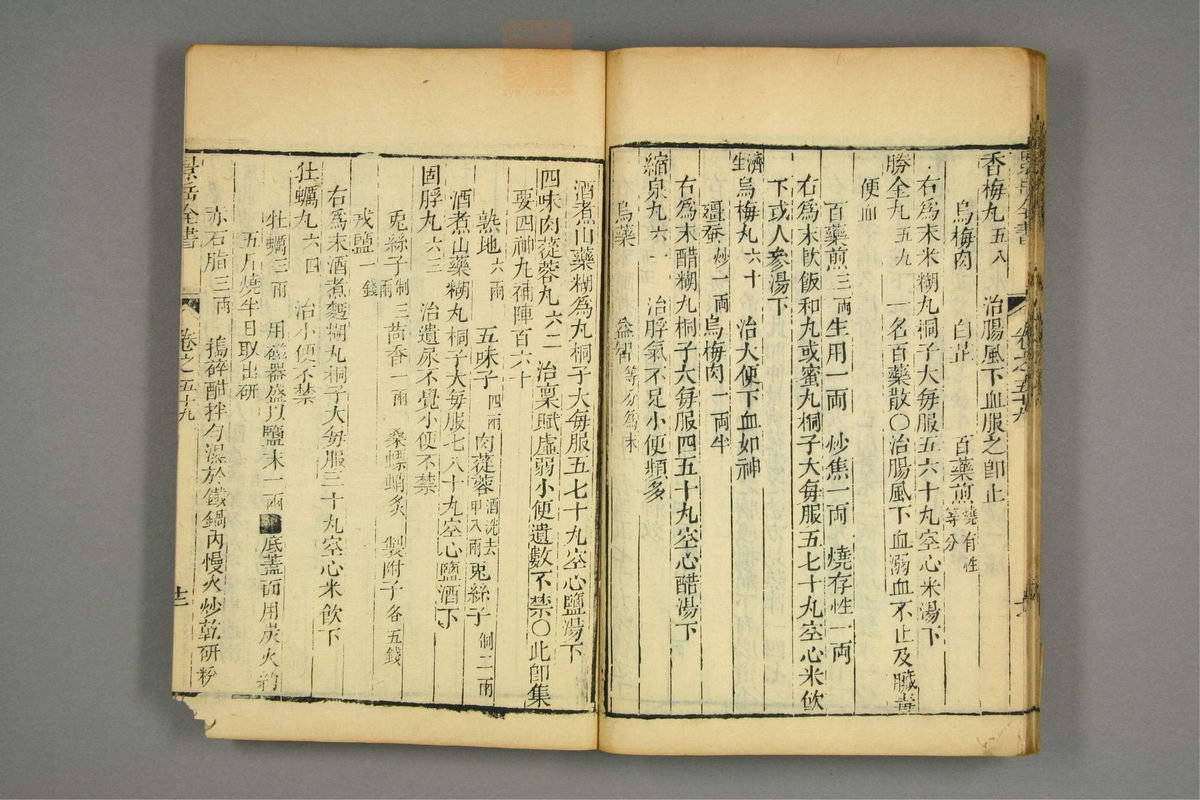 香梅丸五八　治腸風下血服之卽止
烏梅肉　白芷　百藥煎燒存性等分
右爲末米糊丸桐子大每服五六十丸空心米湯下
勝全丸五九　一名百藥散〇治腸風下血溺血不止及臟毒
便血
百藥煎三両生用一両　炒焦一両　燒存性一両
右爲末軟飯和丸或蜜丸桐子大每服五七十丸空心米飲
下或人參湯下
濟生烏梅丸六十　治大便下血如神
殭蚕炒一両烏梅肉一両半
右爲末醋糊丸桐子大每服四五十丸空心醋湯下
縮泉丸六一　治脬氣不足小便頻多
烏藥　益智等分爲末
酒煮山藥糊爲丸桐子大每服五七十丸空心鹽湯下
四味肉蓯蓉丸六二　治稟賦虛弱小便遺數不禁〇此卽集
要四神丸補陣百六十
熟地六両　五味子四両　肉蓯蓉酒洗去甲八両兎絲子制二両
酒煮山藥糊丸桐子大每服七八十丸空心鹽酒下
固脬丸六三　治遺尿不覺小便不禁
兎絲子制三両茴香一両　桑螵蛸炙　製附子各五錢
戎鹽一錢
右爲末酒煮麫糊丸桐子大每服三十丸空心米飲下
牡蠣丸六四　治小便不禁
牡蠣三両　用磁器盛以鹽末一両底蓋面用炭火約
五斤燒半日取出研
赤石脂三両　搗碎醋拌勻濕於鐵鍋內慢火炒乾研粉
景岳全書　卷之五十九　廿二